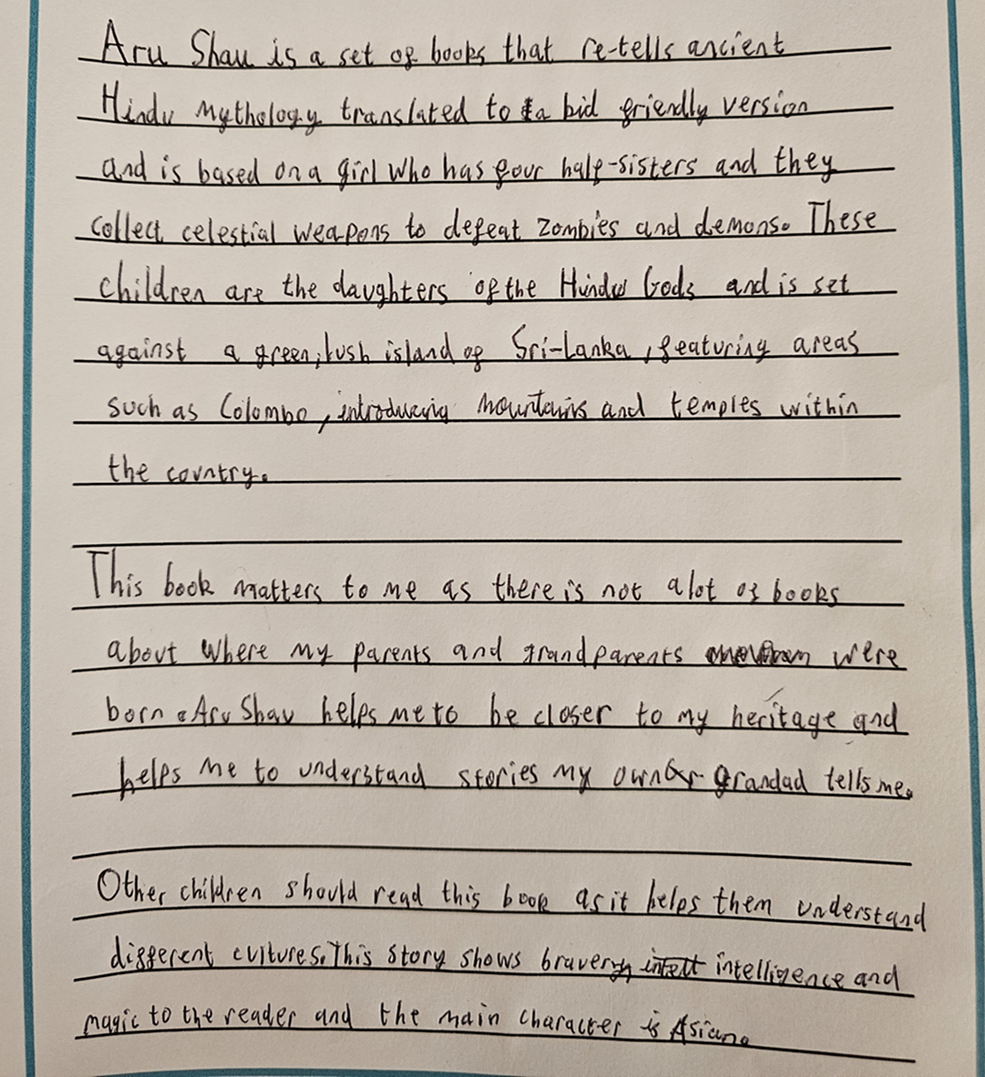 Aru Shau is a set of books that re-tells ancient
Hindu Mythology translated to a kid friendly version
and is based on a girl who has four half-sisters and they
collect celestial weapons to defeat zombies and demons. These
children are the daughters of the Hindu Gods and is set
against a green, lush island of Sri-Lanka, featuring areas
such as Colombo, introducing mountains and temples within
the country.
This book matters to me as there is not alot of books
about where my parents and grandparents were
born. Aru Shau helps me to be closer to my heritage and
helps me to understand stories my own grandad tells me.
Other children should read this book as it helps them understand
different cultures. This story shows bravery intelligence and
magic to the reader and the main character is Asian.